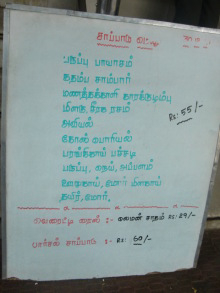 சாப்பாடு
பருப்பு பாயாசம்
கதம்ப சாம்பார்
மணத்தக்காளி காரக்குழம்பு
மிளகு, சீரக ரசம்
அவியல்
கோஸ் பொரியல்
பரங்கிகாய் பச்சடி
பருப்பு, நெய், அப்பளம்
ஊறுகாய், மோர் மிளகாய்
தயிர், மோர்,
Rs: 55/-
வெரைட்டி ரைஸ் :- லெமன் சாதம் Rs: 29/-
பார்சல் சாப்பாடு :- Rs: 60/-